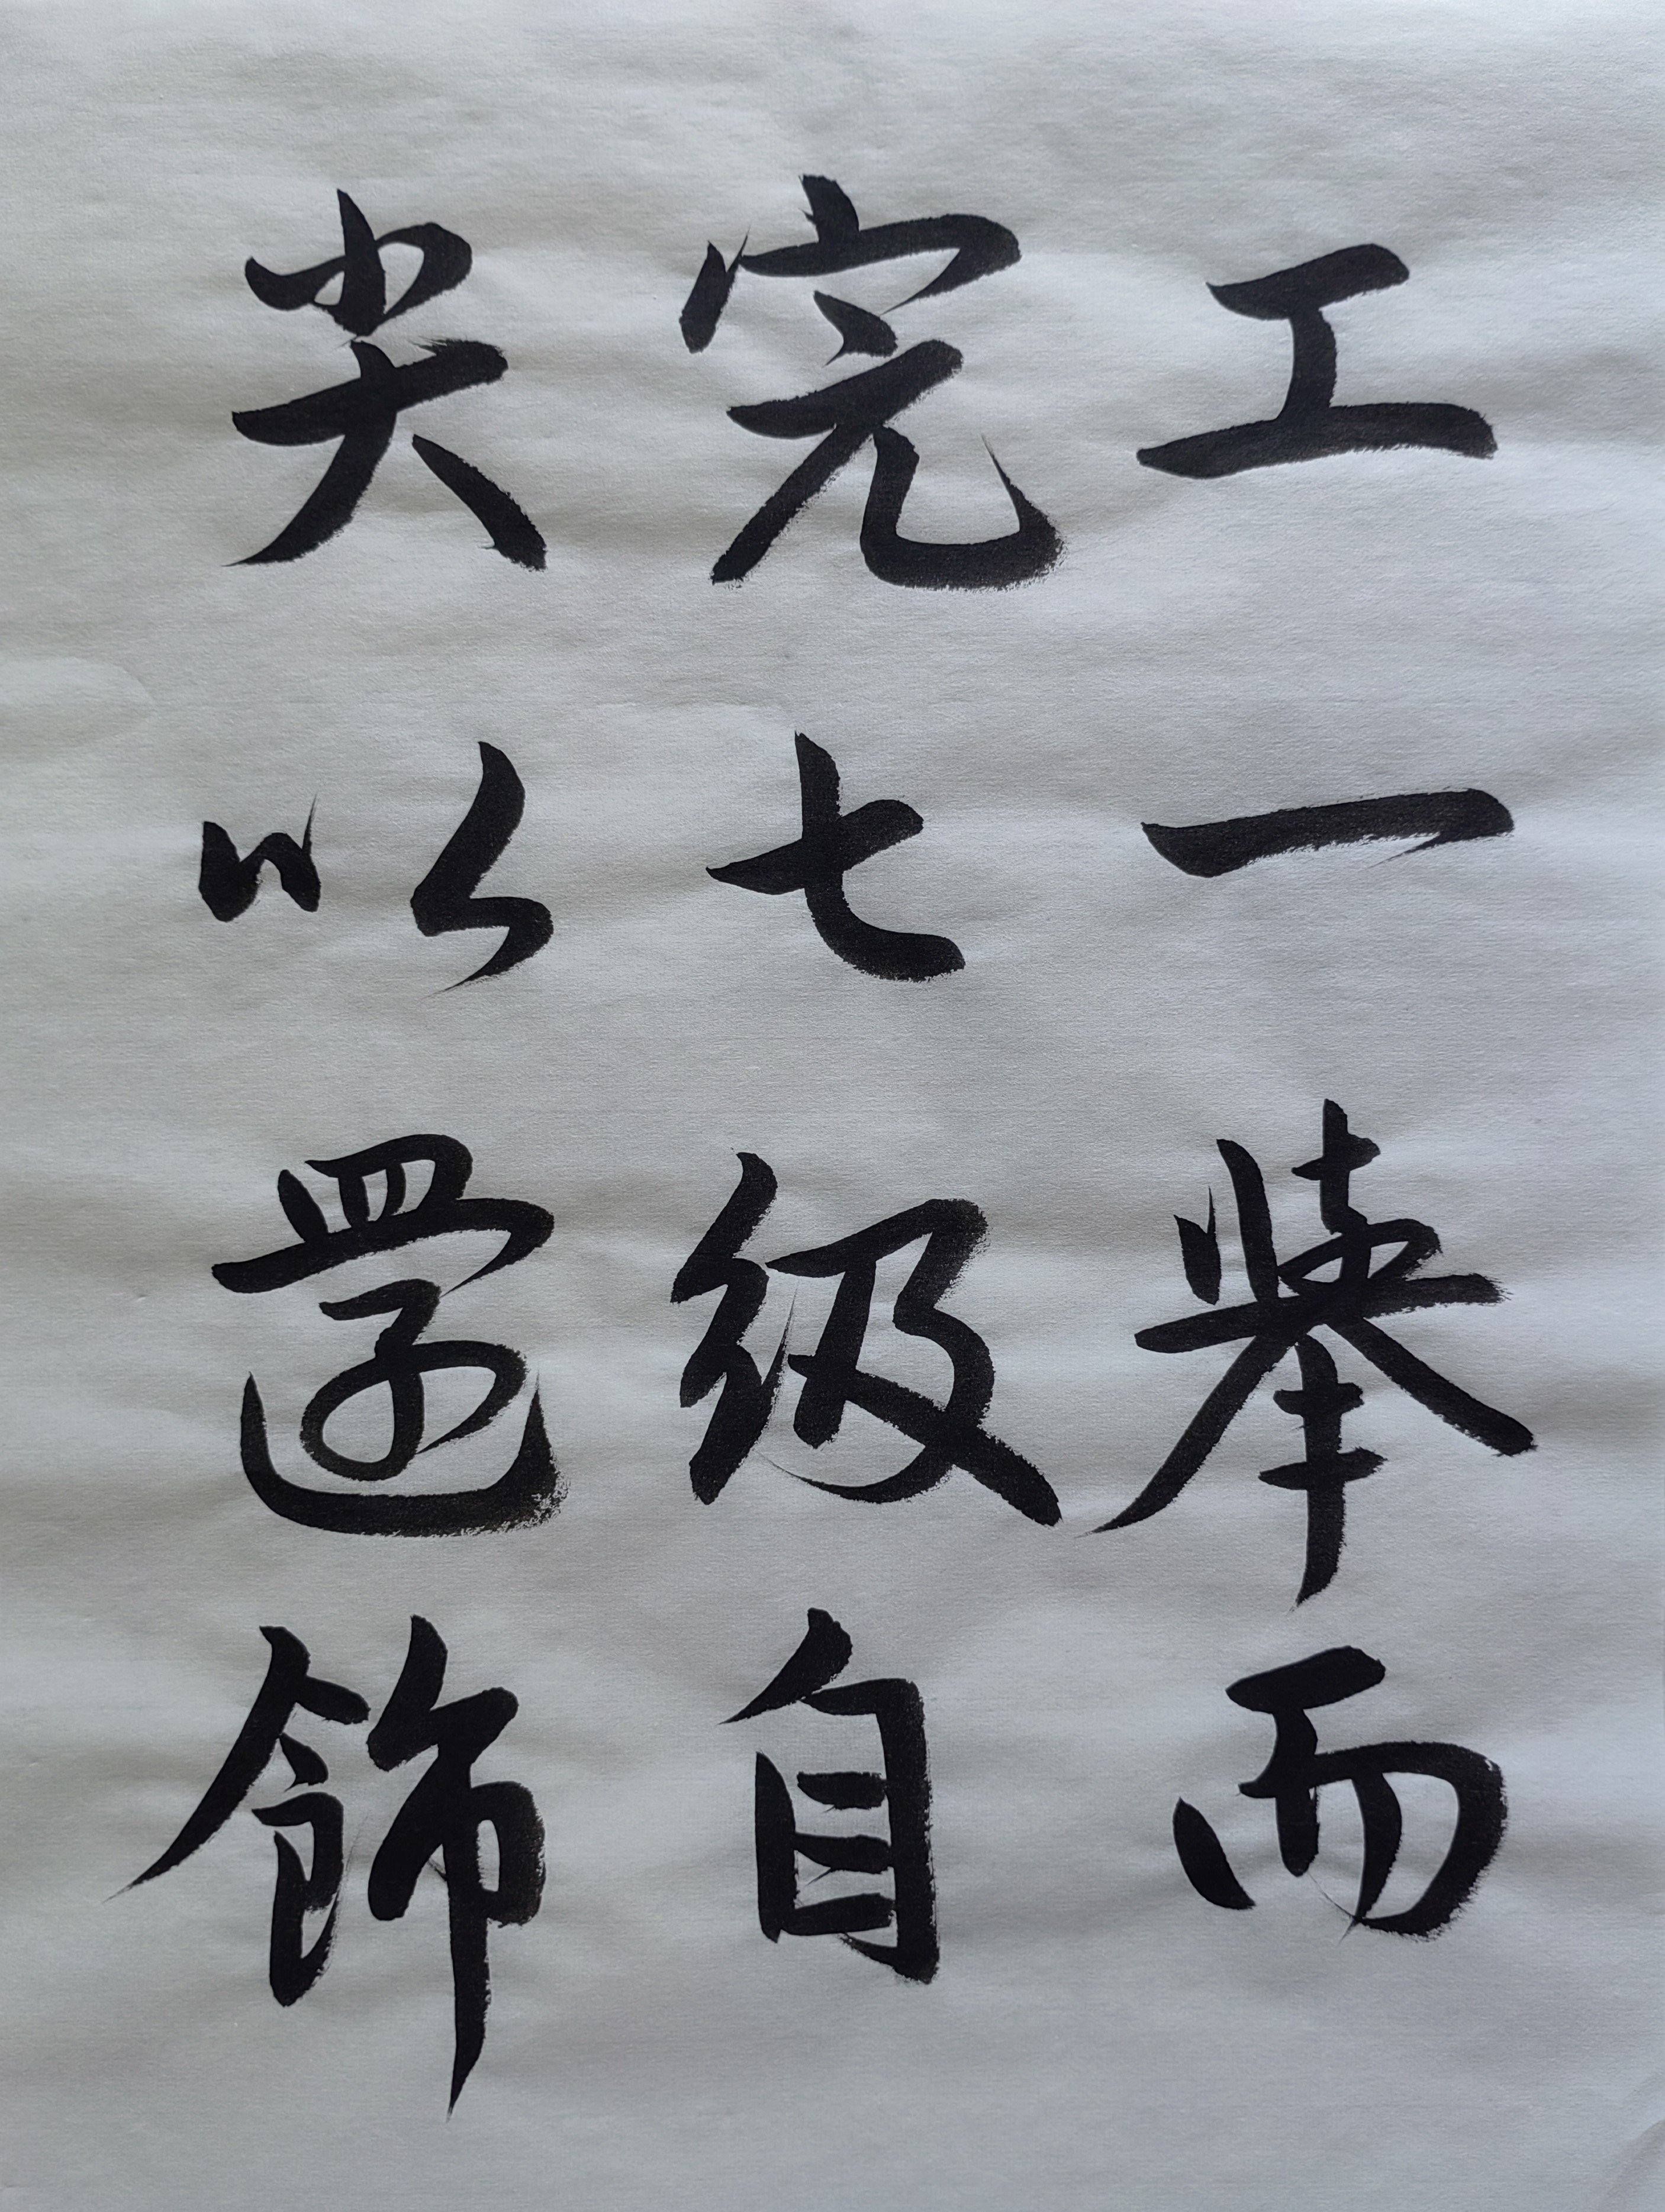 工一舉而
完七級自
尖以還飾